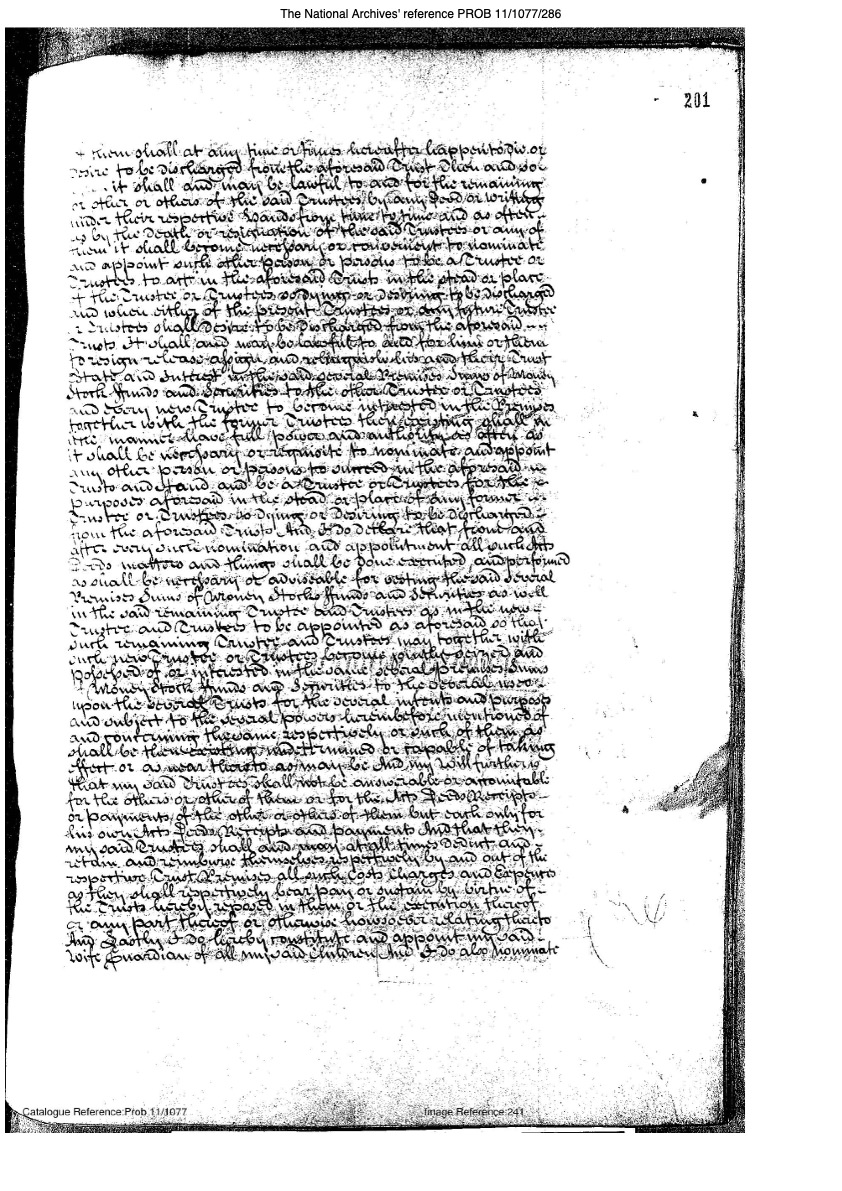 The National Archives' reference PROB 11/1077/286
201
them shall at any time or times hereafter happen to die or
desire to be discharged from the aforesaid Trust Then and so
it shall and may be lawful to and for the remaining
or other or others of the said Trustees by any Deed or writing
under their respective Hands from time to time and as often
as by the Death or resignation of the said Trustees or any of
them it shall become necessary or convenient to nominate
and appoint such other person or persons to be a Trustee or
Trustees to act in the aforesaid Trusts in the stead or place
of the Trustee or Trustees so dying or desiring to be discharged
and when either of the present Trustees or any future Trustee
or Trustees shall desire to be discharged from the aforesaid
Trusts It shall and may be lawful to and for him or them
to resign release assign and relinquish his and their Trust
Estate and Interest in the said several Premises Sums of Money
Stock Funds and Securities to the other Trustee or Trustees
and every new Trustee to become interested in the Premises
together with the former Trustees then existing shall in
like manner have full power and authority as often as
it shall be necessary or requisite to nominate and appoint
any other person or persons to succeed in the aforesaid
Trusts and stand and be a Trustee or Trustees for the
purposes aforesaid in the stead or place of any former
Trustee or Trustees so dying or desiring to be discharged
from the aforesaid Trusts And I do declare that from and
after every such nomination and appointment all such Acts
Deeds matters and things shall be done executed and performed
as shall be necessary or adviseable for vesting the said several
Premises Sums of Money Stocks Funds and Securities as well
in the said remaining Trustee and Trustees as in the new
Trustee and Trustees to be appointed as aforesaid so that
such remaining Trustee and Trustees may together with
such new Trustee or Trustees become jointly seized and
possessed of or interested in the same several Premises Sums
of Money Stock Funds and Securities to the several uses
upon the several Trusts for the several intents and purposes
and subject to the several powers hereinbefore mentioned of
and concerning the same respectively or such of them as
shall be then existing undetermined or capable of taking
effect or as near thereto as may be And my Will further is
that my said Trustees shall not be answerable or accountable
for the others or other of them or for the Acts Deeds Receipts
or payments of the other or others of them but each only for
his own Acts Deeds Receipts and payments And that they
my said Trustees shall and may at all times deduct and
retain and reimburse themselves respectively by and out of the
respective Trust Premises all such Costs Charges and Expences
as they shall respectively bear pay or sustain by virtue of
the Trusts hereby reposed in them or the execution thereof
or any part thereof or otherwise howsoever relating thereto
And Lastly I do hereby constitute and appoint my said
Wife Guardian of all my said Children And I do also nominate
Catalogue Reference:Prob 11/1077
Image Reference:241